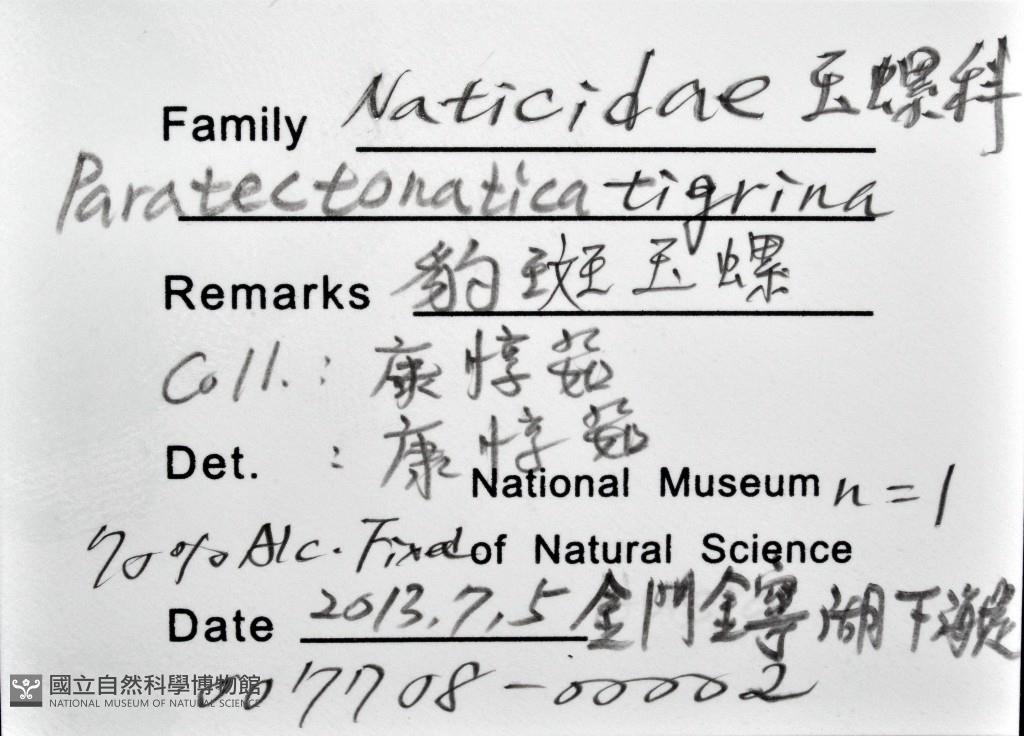 Family Naticidae 玉螺科
Paratectonatica tigrina
Remarks 豹斑玉螺
Coll. : 康惇茹
Det. : 康惇茹
National Museum n=1
70% Alc. Fixed of Natural Science
Date 2013.7.5 金門金寧湖下海堤
007708-00002
國立自然科學博物館
NATIONAL MUSEUM OF NATURAL SCIENCE